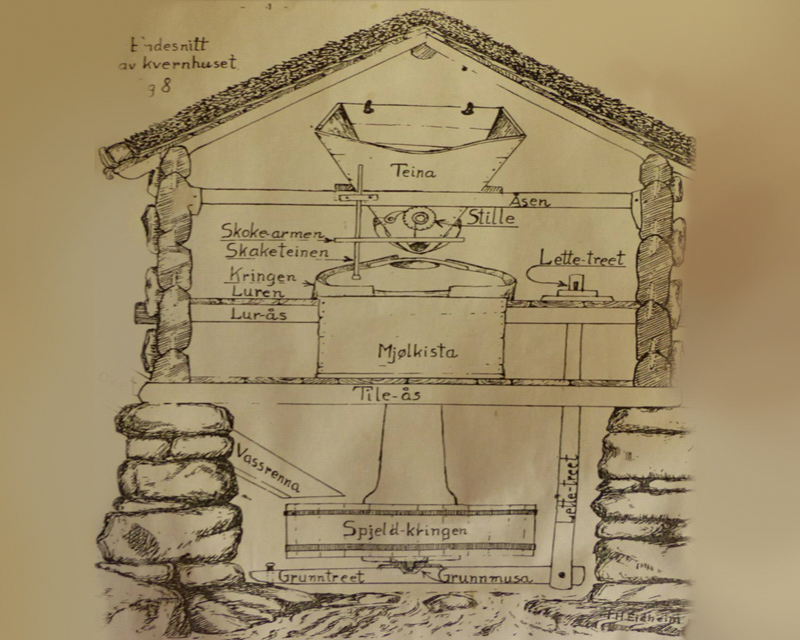 Endesnitt
av kvernhuset
g 8
Teina
Åsen
Stille
Skoke-armen
Skaketeinen
Lette-treet
Kringen
Luren
Lur-ås
Mjølkista
Tile-ås
Vassrenna
Lette-treet
Spjeld-kringen
Grunntreet
Grunnmusa
Eidheim